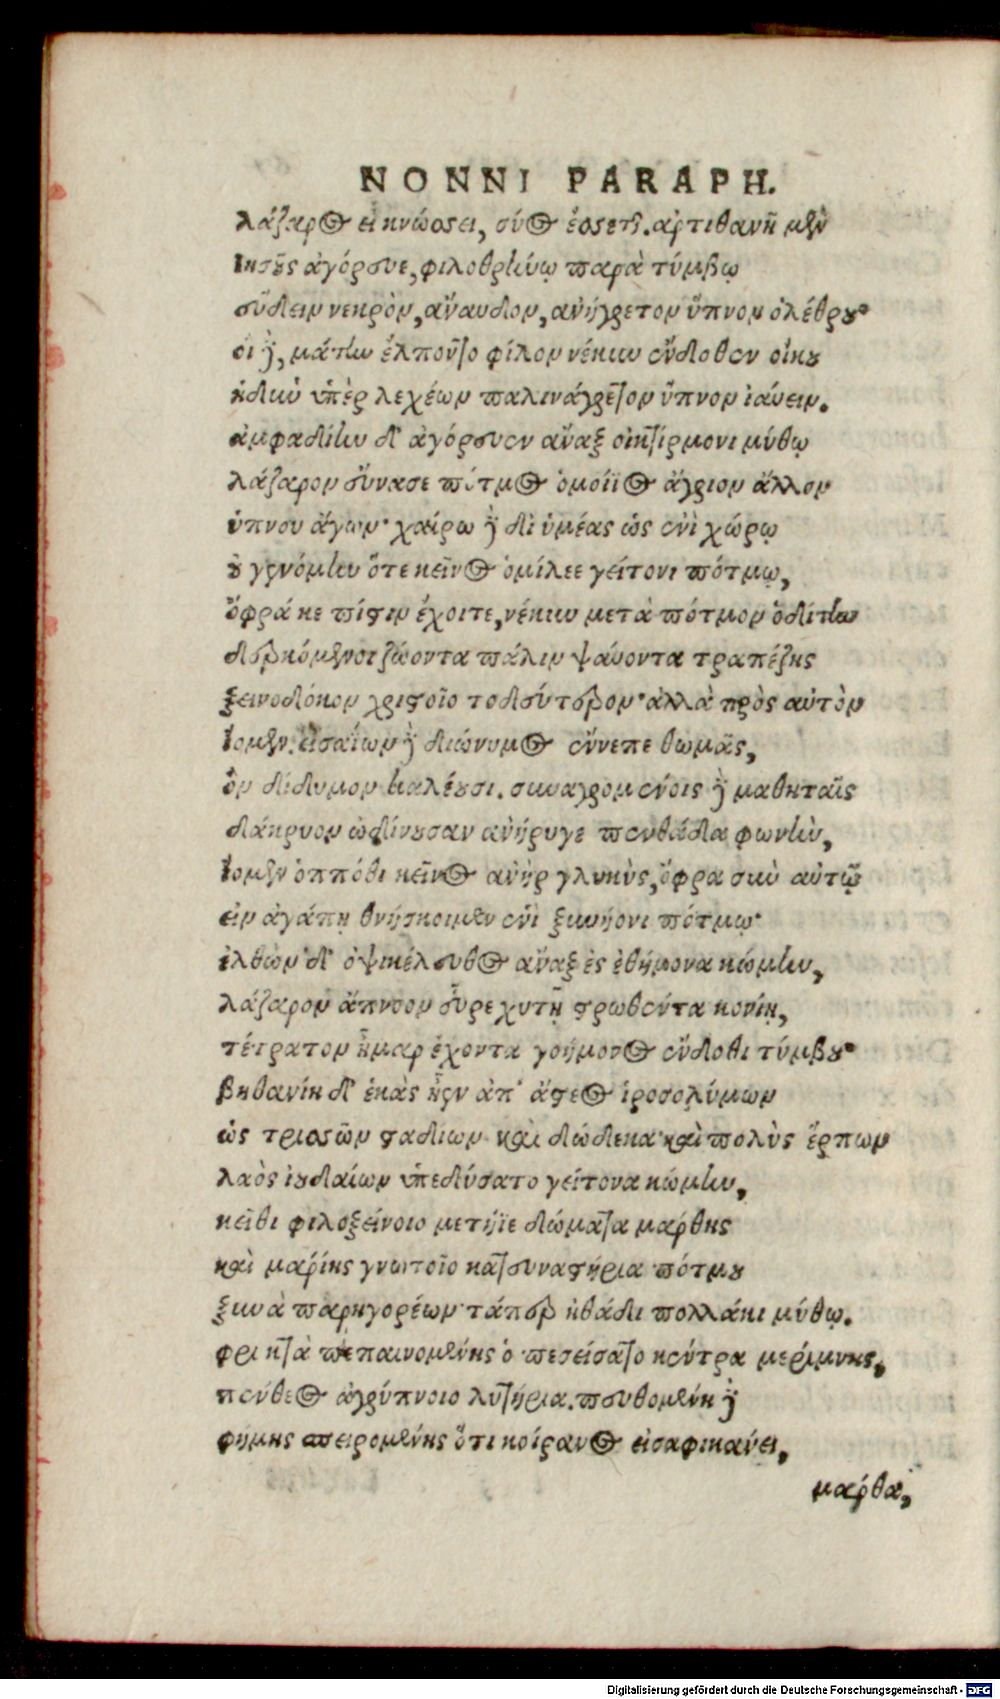 NONNI PARAPH.
λάζαρος εἰ κνώσσει, σόος ἔσσεται. ἀρτιθανῆ μὲν
Ἰησοῦς ἀγόρευε, φιλοθρήνῳ παρὰ τύμβῳ
εὕδειν νεκρὸν, ἄναυδον, ἀνήγρετον ὕπνον ὀλέθρου·
οἱ δὲ, μάτην ἔλποντο φίλον νέκυν ἔνδοθεν οἴκου
ἡδὺν ὑπὲρ λεχέων παλινάγρετον ὕπνον ἰαύειν.
ἀμφαδίην δ' ἀγόρευεν ἄναξ οἰκτίρμονι μύθῳ
λάζαρον εὔνασε πότμος ὁμοίϊος ἄγριον ἄλλον
ὕπνον ἄγων· χαίρω δὲ δι' ὑμέας ὡς ἐνὶ χώρῳ
οὐ γενόμην ὅτε κεῖνος ὁμίλεε γείτονι πότμῳ,
ὄφρά κε πίστιν ἔχοιτε, νέκυν μετὰ πότμον ὁδίτην
δερκόμενοι ζώοντα πάλιν ψαύοντα τραπέζης
ξεινοδόκον χριστοῖο τὸ δεύτερον· ἀλλὰ πρὸς αὐτὸν
ἴομεν. εἰσαΐων δὲ διώνυμος ἔννεπε θωμᾶς,
ὃν δίδυμον καλέουσι. συναγρομένοις δὲ μαθηταῖς
δάκρυον ὠδίνουσαν ἀνήρυγε πενθάδα φωνὴν,
ἴομεν ὁππόθι κεῖνος ἀνὴρ γλυκὺς, ὄφρα σὺν αὐτῷ
εἰν ἀγάπῃ θνήσκοιμεν ἐνὶ ξυνήονι πότμῳ·
ἐλθὼν δ' ὀψικέλευθος ἄναξ ἐς ἐθήμονα κώμην,
λάζαρον ἄπνοον εὗρε χυτῇ στρωθέντα κονίῃ,
τέτρατον ἦμαρ ἔχοντα γοήμονος ἔνδοθι τύμβου·
βηθανίη δ' ἑκὰς ἦεν ἀπ' ἄστεος ἱροσολύμων
ὡς τρισσῶν σταδίων καὶ δώδεκα· καὶ πολὺς ἕρπων
λαὸς ἰουδαίων ὑπεδύσατο γείτονα κώμην,
κεῖθι φιλοξείνοιο μετήϊε δώματα μάρθης
καὶ μαρίης γνωτοῖο κατευναστήρια πότμου
ξυνὰ παρηγορέων τάπερ ἠθάδι πολλάκι μύθῳ.
φρικτὰ πεπαινομένης ὁ πεσείσατο κέντρα μερίμνης,
πένθεος ἀγρύπνοιο λυτήρια. πευθομένη δὲ
φήμης σπειρομένης ὅτι κοίρανος εἰσαφικάνει,
μάρθα,
Digitalisierung gefördert durch die Deutsche Forschungsgemeinschaft - DFG